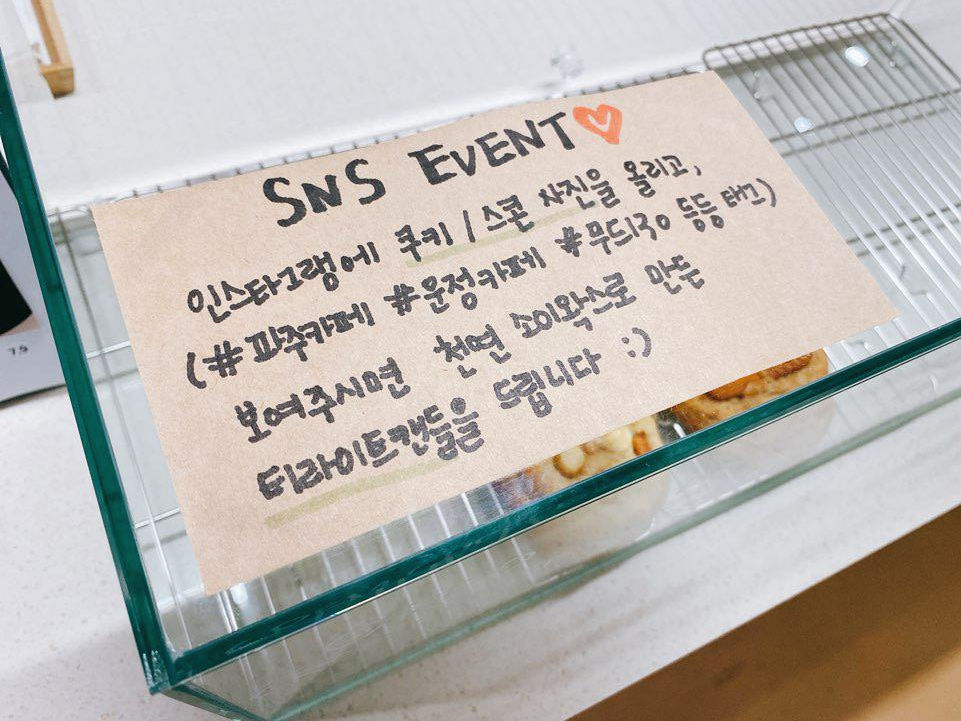 SNS EVENT
인스타그램에 쿠키 / 스콘 사진을 올리고,
(#파주카페 #운정카페 #무드국 등등 태그)
보여주시면 천연 소이왁스로 만든
티라이트캔들을 드립니다 :)
79